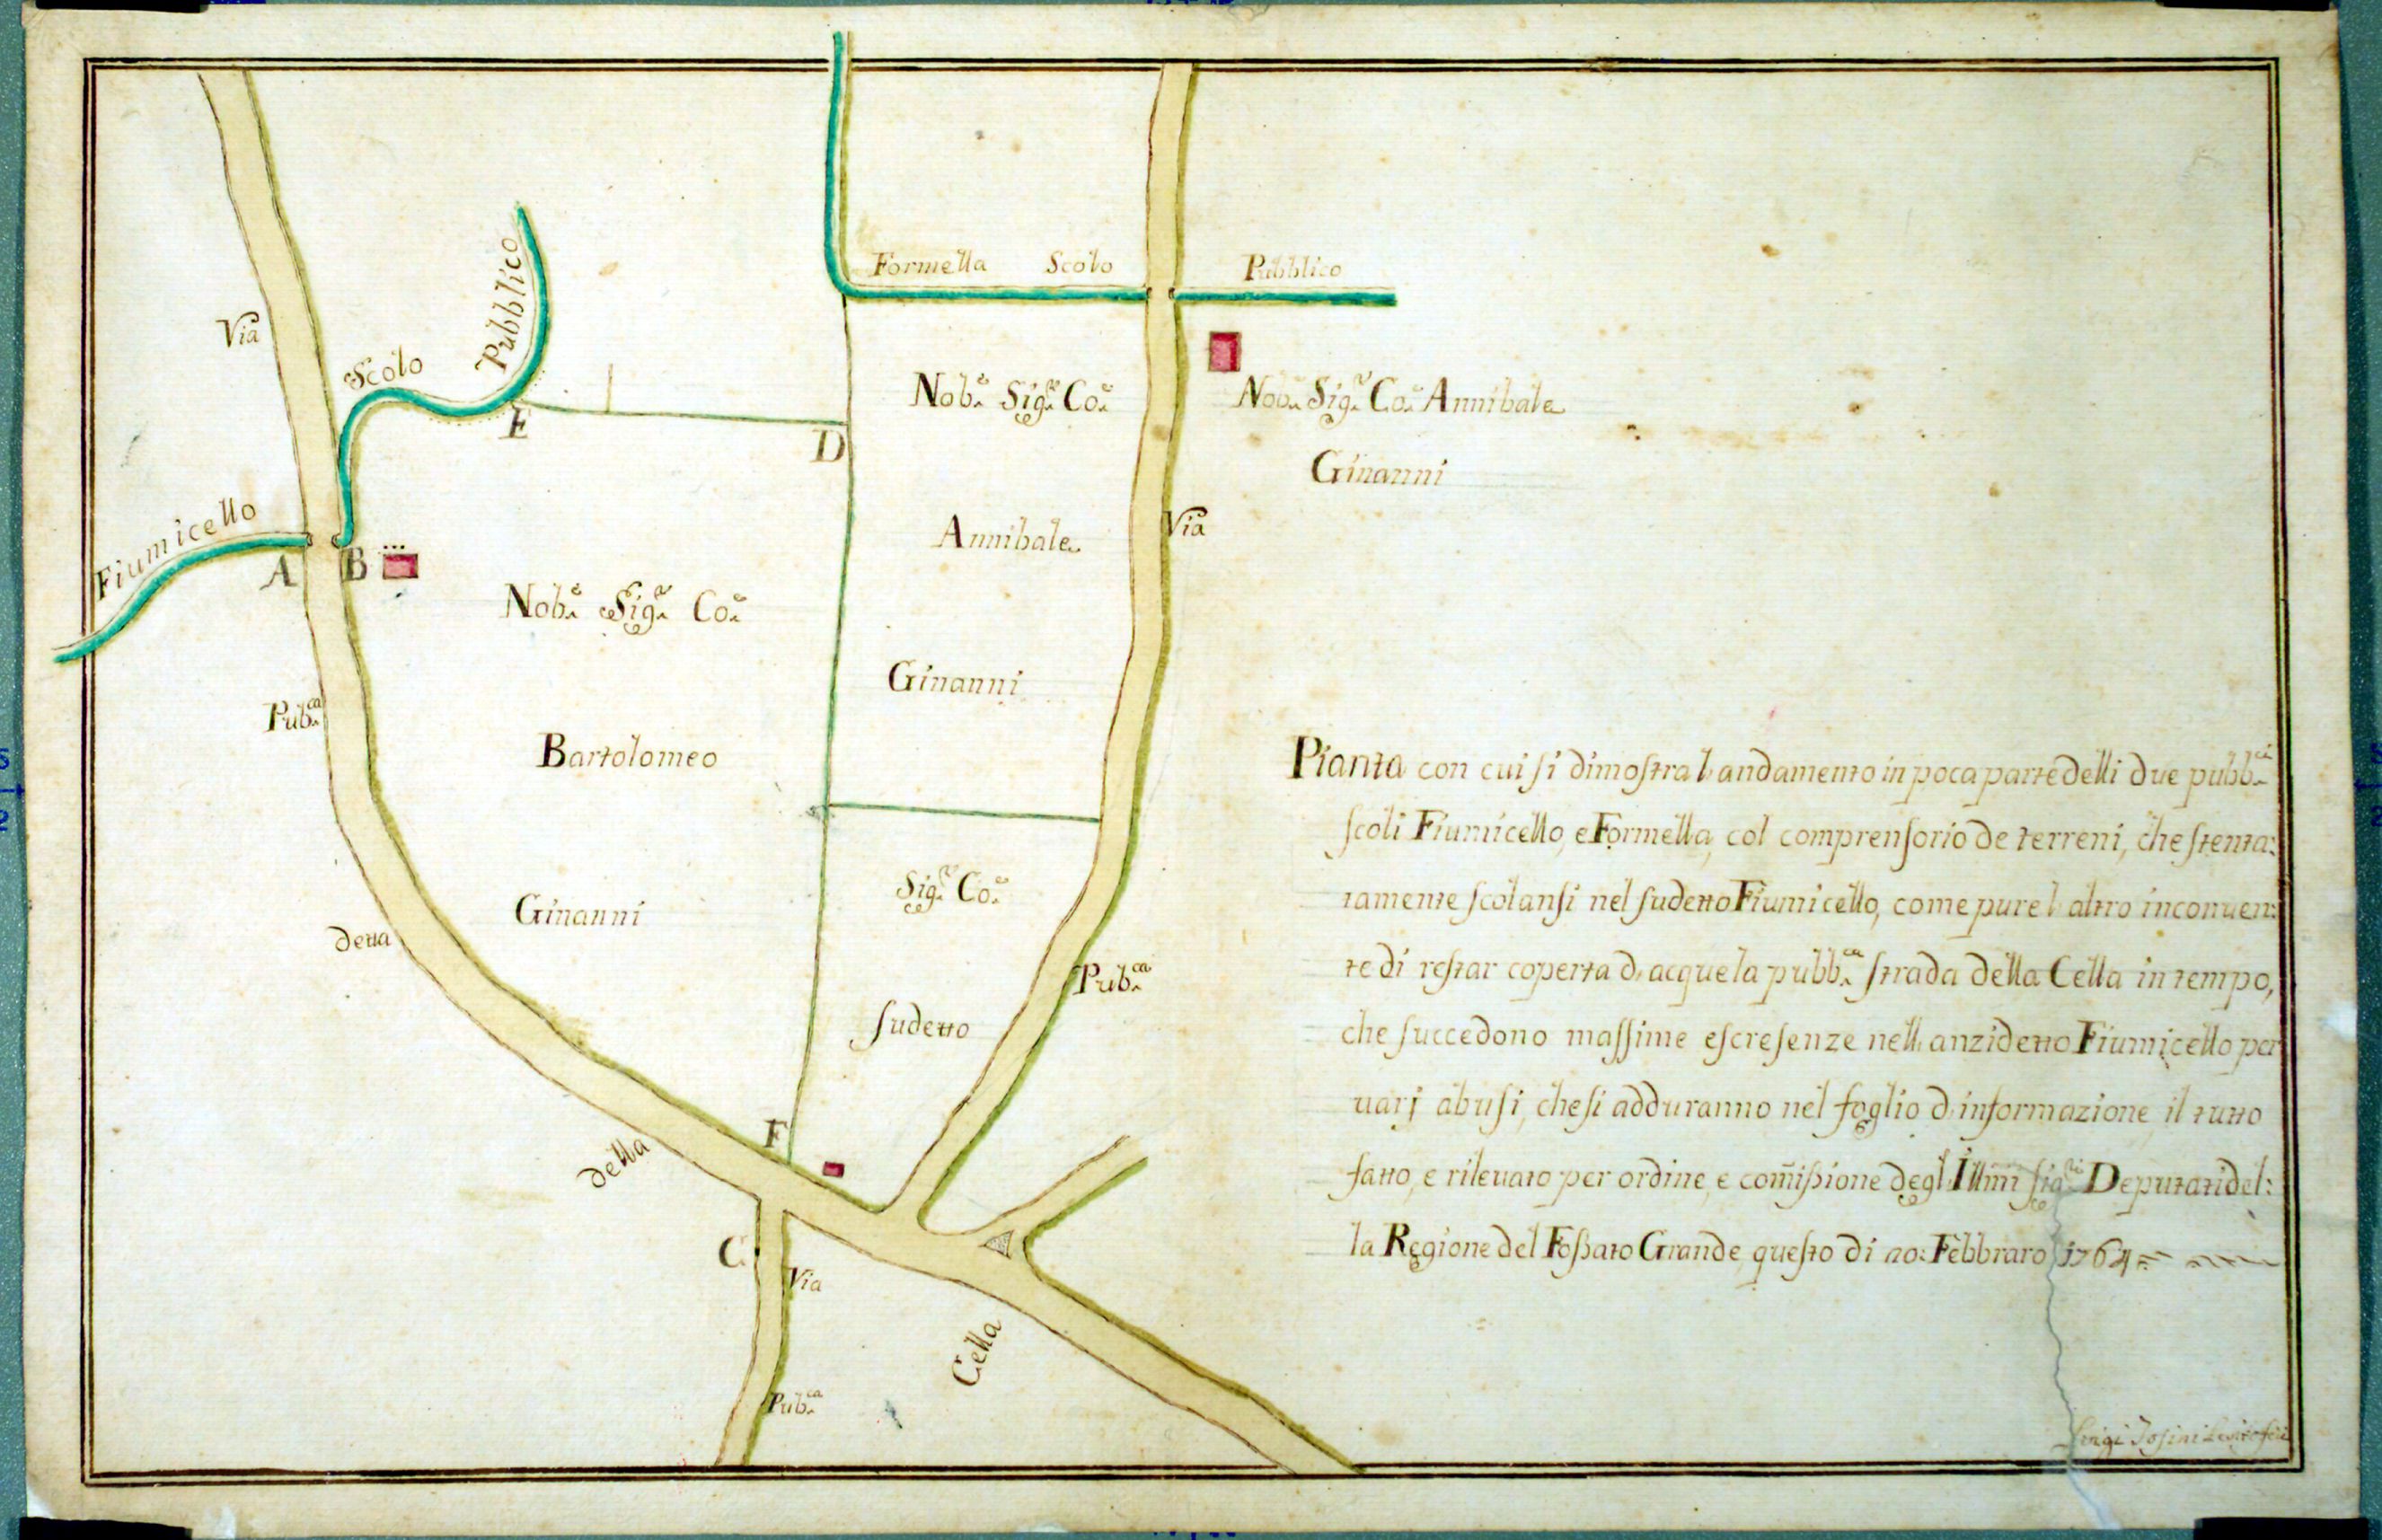 Formella Scolo Pubblico
Via
Scolo Pubblico
E
D
Fiumicello
A
B
Nob.e Sig.r Co.e
Annibale
Ginanni
Nob.e Sig.r Co.e Annibale
Ginanni
Via
Nob.e Sig.r Co.e
Bartolomeo
Ginanni
Pub.ca
detta
Sig.r Co.e
sudetto
Pub.ca
F
della
C
Via
Pub.ca
Cella
Pianta con cui si dimostra l'andamento in poca parte delli due pubb.ci
scoli Fiumicello, e Formella, col comprensorio de terreni, che stenta:
tamente scolansi nel sudetto Fiumicello, come pure l'altro inconuen:
te di restar coperta d'acque la pubb.ca strada della Cella in tempo,
che succedono massime escresenze nell'anzidetto Fiumicello per
uarj abusi, che si adduranno nel foglio d'informazione, il tutto
fatto, e rileuato per ordine, e com̃issione degl'Ill̃mi Sig.ri Deputati del:
la Regione del Fossato Grande questo di 20: Febbraro 1764